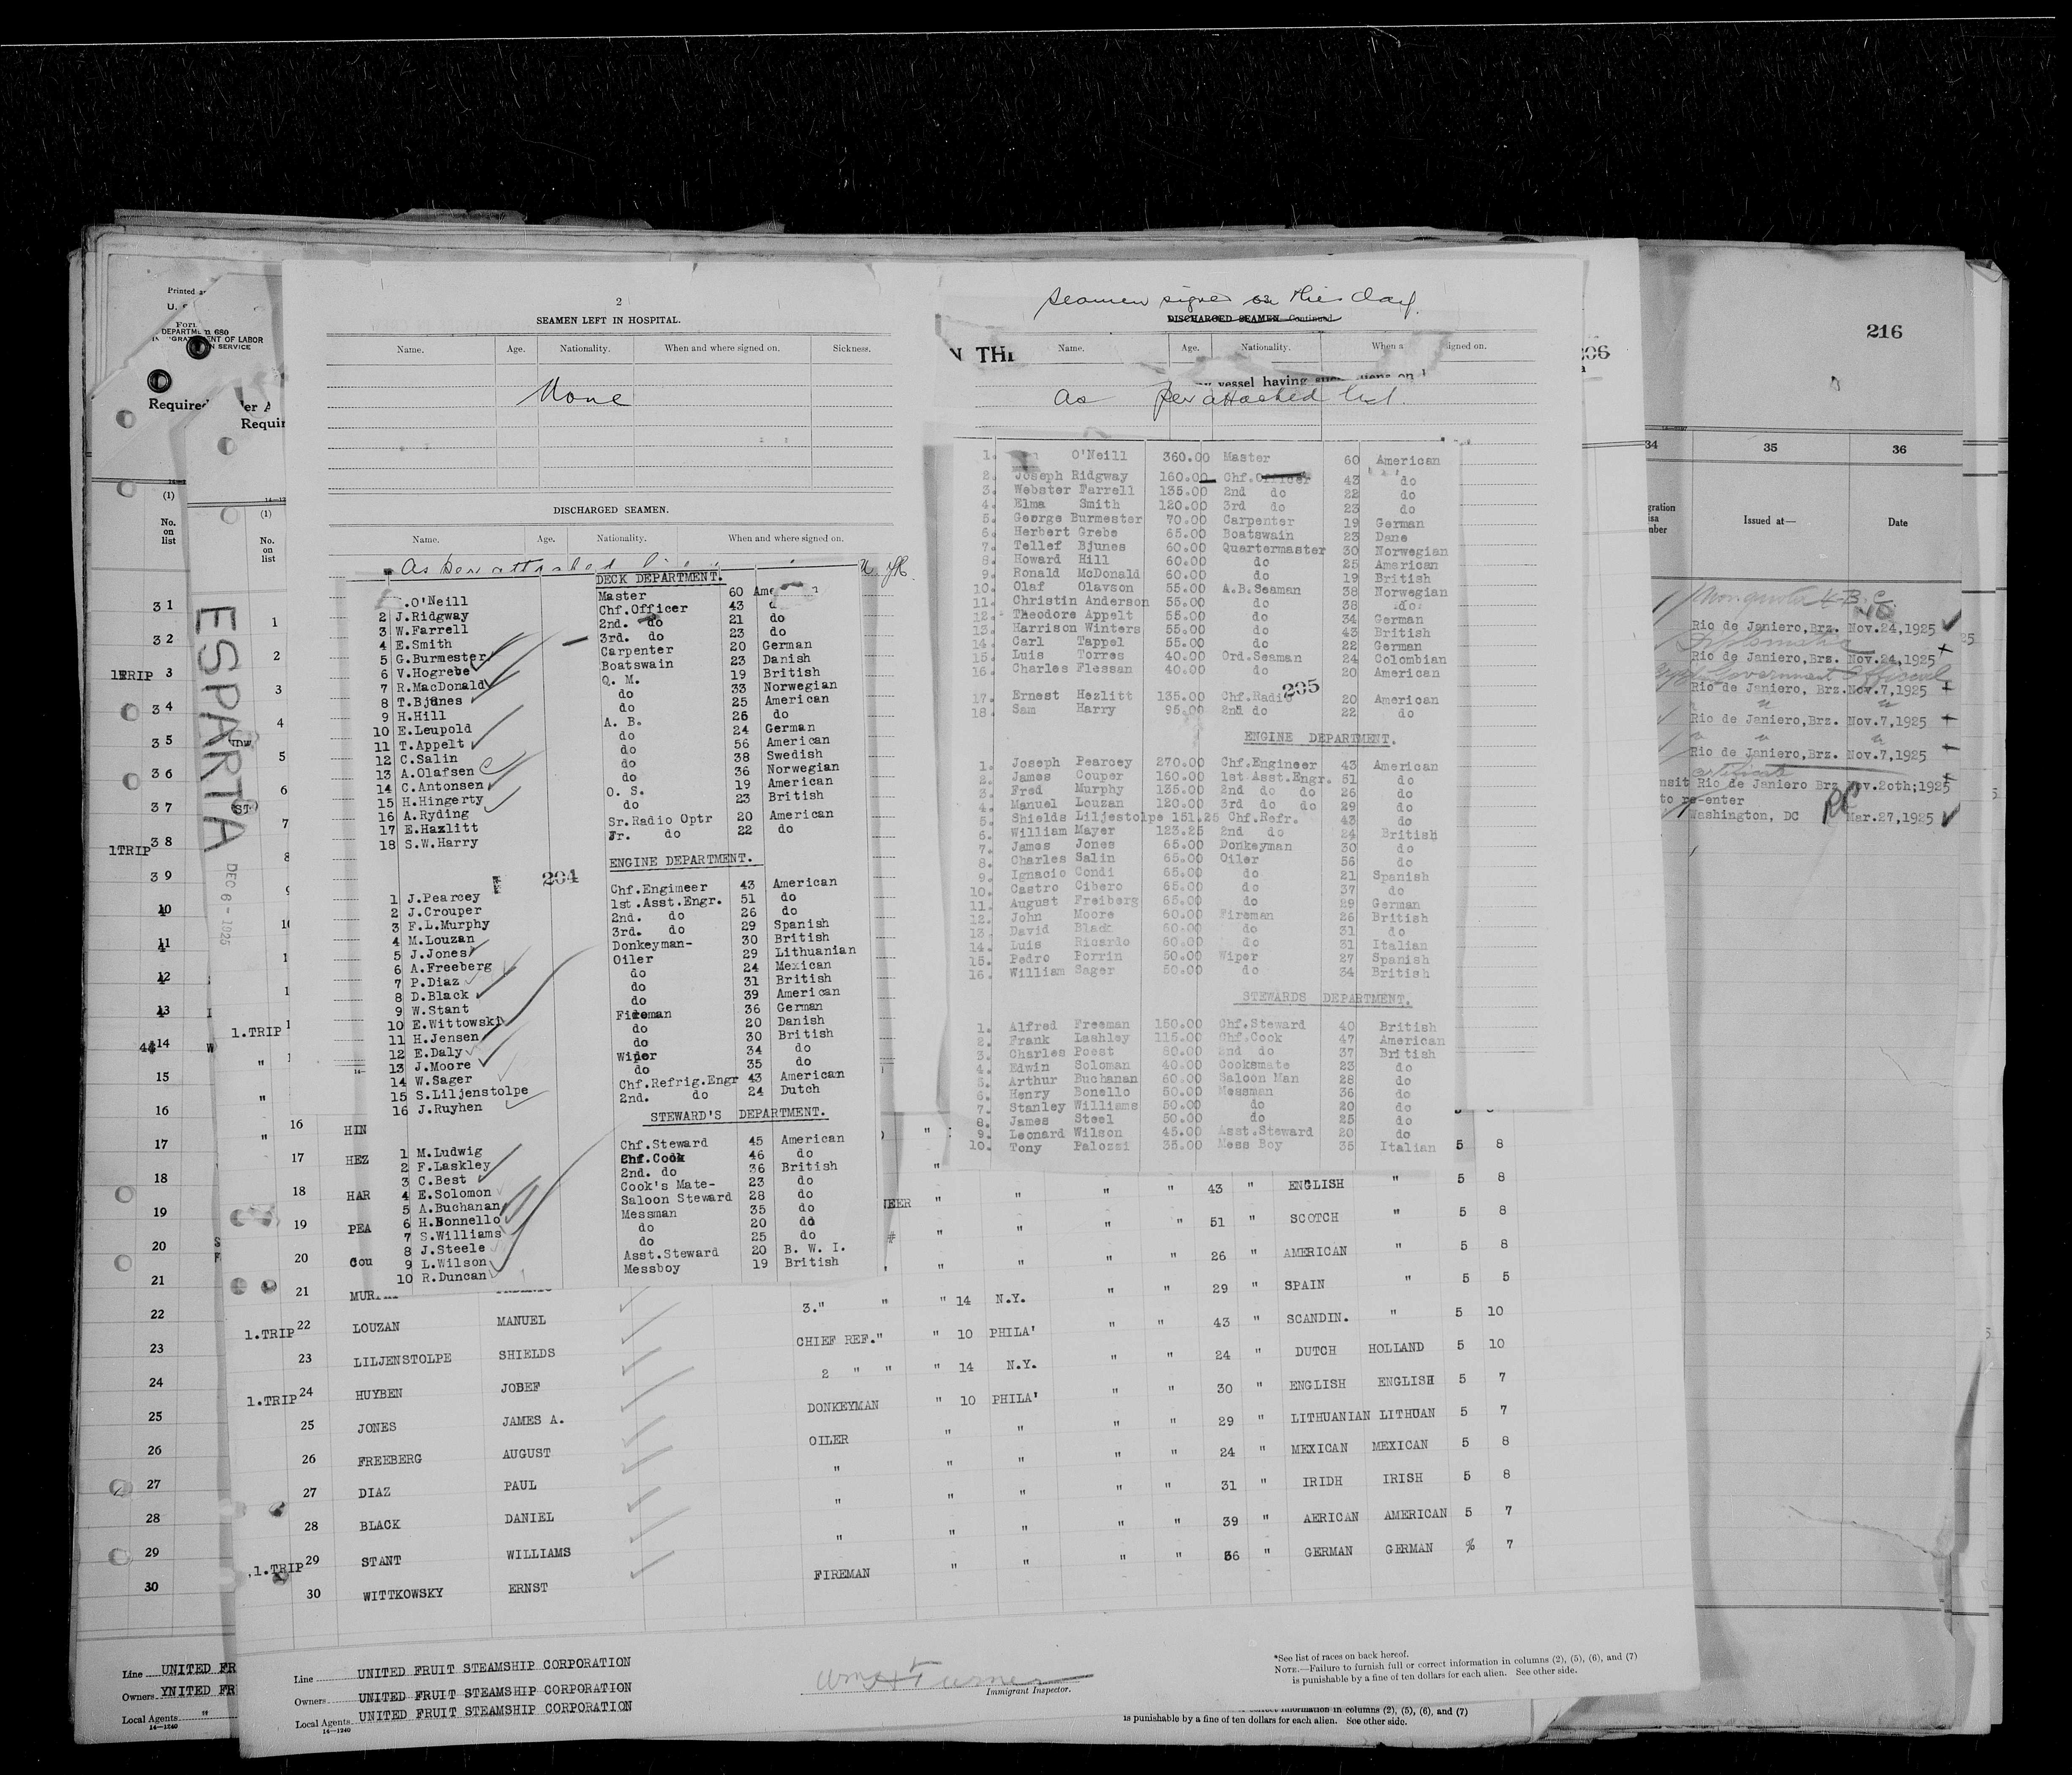 2
SEAMEN LEFT IN HOSPITAL.
Name. Age. Nationality. When and where signed on. Sickness.
None
DISCHARGED SEAMEN.
Name. Age. Nationality. When and where signed on.
As per attached
DECK DEPARTMENT.
.O'Neill Master 60
2 J.Ridgway Chf.Officer 43
3 W.Farrell 2nd. do 21 do
4 E.Smith 3rd. do 23 do
5 G.Burmester Carpenter 20 German
6 V.Hogrebe Boatswain 23 Danish
7 R.MacDonald Q. M. 19 British
8 T.Bjunes do 33 Norwegian
9 H.Hill do 25 American
10 E.Leupold A. B. 26 do
11 T.Appelt do 24 German
12 C.Salin do 56 American
13 A.Olafsen do 38 Swedish
14 C.Antonsen do 36 Norwegian
15 H.Hingerty O. S. 19 American
16 A.Ryding do 23 British
17 E.Hazlitt Sr.Radio Optr 20 American
18 S.W.Harry Jr. do 22 do
204
ENGINE DEPARTMENT.
1 J.Pearcey Chf.Engimeer 43 American
2 J.Crouper 1st.Asst.Engr. 51 do
3 F.L.Murphy 2nd. do 26 do
4 M.Louzan 3rd. do 29 Spanish
5 J.Jones Donkeyman- 30 British
6 A.Freeberg Oiler 29 Lithuanian
7 P.Diaz do 24 Mexican
8 D.Black do 31 British
9 W.Stant do 39 American
10 E.Wittowski Fireman 36 German
11 H.Jensen do 20 Danish
12 E.Daly do 30 British
13 J.Moore Wiper 34 do
14 W.Sager do 35 do
15 S.Liljenstolpe Chf.Refrig.Engr 43 American
16 J.Ruyhen 2nd. do 24 Dutch
STEWARD'S DEPARTMENT.
1 M.Ludwig Chf.Steward 45 American
2 F.Laskley Chf.Cook 46 do
3 C.Best 2nd. do 36 British
4 E.Solomon Cook's Mate- 23 do
5 A.Buchanan Saloon Steward 28 do
6 H.Bonnello Messman 35 do
7 S.Williams do 20 do
8 J.Steele do 25 do
9 L.Wilson Asst.Steward 20 B. W. I.
10 R.Duncan Messboy 19 British
Seamen signed on this day.
DISCHARGED SEAMEN—Continued
Name. Age. Nationality. When a igned on.
N THE
vessel having
As per attached list.
1. O'Neill 360.00 Master 60 American
2. Joseph Ridgway 160.00 Chf.Officer 43 do
3. Webster Farrell 135.00 2nd do 22 do
4. Elma Smith 120.00 3rd do 23 do
5. George Burmester 70.00 Carpenter 19 German
6. Herbert Grebe 65.00 Boatswain 23 Dane
7. Tellef Bjunes 60.00 Quartermaster 30 Norwegian
8. Howard Hill 60.00 do 25 American
9. Ronald McDonald 60.00 do 19 British
10. Olaf Olavson 55.00 A.B.Seaman 38 Norwegian
11. Christin Anderson 55.00 do 38 do
12. Theodore Appelt 55.00 do 34 German
13. Harrison Winters 55.00 do 43 British
14. Carl Tappel 55.00 do 22 German
15. Luis Torres 40.00 Ord.Seaman 24 Colombian
16. Charles Flessen 40.00 do 20 American
205
17. Ernest Hezlitt 135.00 Chf.Radio 20 American
18. Sam Harry 95.00 2nd do 22 do
ENGINE DEPARTMENT.
1. Joseph Pearcey 270.00 Chf.Engineer 43 American
2. James Couper 160.00 1st.Asst.Engr. 51 do
3. Fred Murphy 135.00 2nd do do 26 do
4. Manuel Louzan 120.00 3rd do do 29 do
5. Shields Liljestolpe 151.25 Chf.Refr. 43 do
6. William Mayer 123.25 2nd do 24 British
7. James Jones 65.00 Donkeyman 30 do
8. Charles Salin 65.00 Oiler 56 do
9. Ignacio Condi 65.00 do 21 Spanish
10. Castro Cibero 65.00 do 37 do
11. August Freiberg 65.00 do 29 German
12. John Moore 60.00 Fireman 26 British
13. David Black 60.00 do 31 do
14. Luis Ricardo 60.00 do 31 Italian
15. Pedro Porrin 50.00 Wiper 27 Spanish
16. William Sager 50.00 do 34 British
STEWARDS DEPARTMENT.
1. Alfred Freeman 150.00 Chf.Steward 40 British
2. Frank Lashley 115.00 Chf.Cook 47 American
3. Charles Poest 80.00 2nd do 37 British
4. Edwin Soloman 40.00 Cooksmate 23 do
5. Arthur Buchanan 60.00 Saloon Man 28 do
6. Henry Bonello 50.00 Messman 36 do
7. Stanley Williams 50.00 do 20 do
8. James Steel 50.00 do 25 do
9. Leonard Wilson 45.00 Asst.Steward 20 do
10. Tony Palozzi 35.00 Mess Boy 35 Italian
216
34 35 36
Issued at— Date
Rio de Janiero,Brz. Nov.24,1925
Diplomatic
Rio de Janiero,Brz. Nov.24,1925
Government Official
Rio de Janiero, Brz. Nov.7,1925
Rio de Janiero,Brz. Nov.7,1925
Rio de Janiero,Brz. Nov.7,1925
certificate
nsit Rio de Janiero Brz Nov.20th;1925
to re-enter
Washington, DC Mar.27,1925
Printed
Form 680
DEPARTMENT OF LABOR
Required
ESPARTA
DEC 6 - 1925
(1)
No. on list
16 HIN
17 HEZ
18 HAR 43 " ENGLISH " 5 8
19 PEA 51 " SCOTCH " 5 8
20 Cou 26 " AMERICAN " 5 8
21 MUR 29 " SPAIN " 5 5
1.TRIP 22 LOUZAN MANUEL 3." " " 14 N.Y. " " 43 " SCANDIN. " 5 10
23 LILJENSTOLPE SHIELDS CHIEF REF." " 10 PHILA' " " 24 " DUTCH HOLLAND 5 10
1.TRIP 24 HUYBEN JOBEF 2 " " " 14 N.Y. " " 30 " ENGLISH ENGLISH 5 7
25 JONES JAMES A. DONKEYMAN " 10 PHILA' " " 29 " LITHUANIAN LITHUAN 5 7
26 FREEBERG AUGUST OILER " " " " 24 " MEXICAN MEXICAN 5 8
27 DIAZ PAUL " " " " " 31 " IRIDH IRISH 5 8
28 BLACK DANIEL " " " " " 39 " AERICAN AMERICAN 5 7
1.TRIP 29 STANT WILLIAMS " " " " " 36 " GERMAN GERMAN % 7
30 WITTKOWSKY ERNST FIREMAN
Line UNITED FRUIT STEAMSHIP CORPORATION
Owners UNITED FRUIT STEAMSHIP CORPORATION
Local Agents UNITED FRUIT STEAMSHIP CORPORATION
14—1240
Immigrant Inspector.
*See list of races on back hereof.
NOTE.—Failure to furnish full or correct information in columns (2), (5), (6), and (7)
is punishable by a fine of ten dollars for each alien. See other side.
information in columns (2), (5), (6), and (7)
is punishable by a fine of ten dollars for each alien. See other side.
Line UNITED FR
Owners YNITED FR
Local Agents "
14—1240